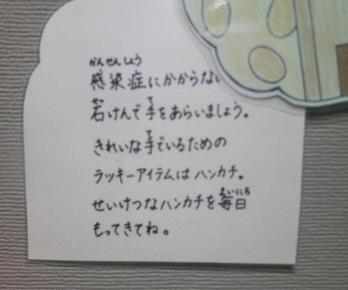 感染症にかからない
石けんで手をあらいましょう。
きれいな手でいるための
ラッキーアイテムはハンカチ。
せいけつなハンカチを毎日
もってきてね。